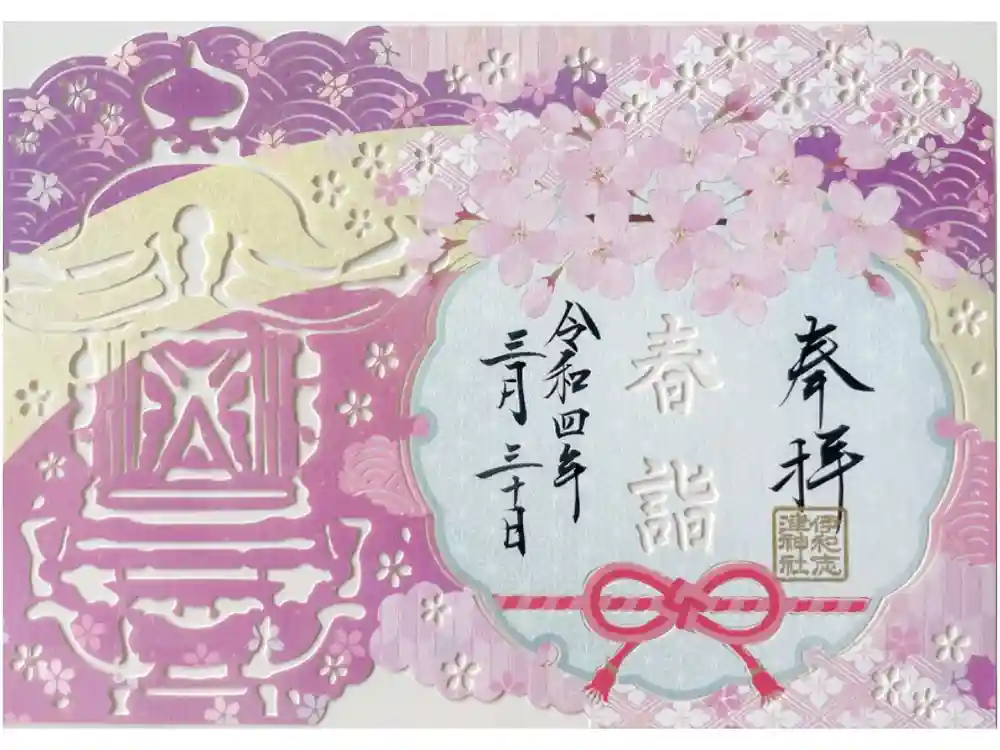 奉拝
伊和志
津神社
春詣
令和四年
三月三十日